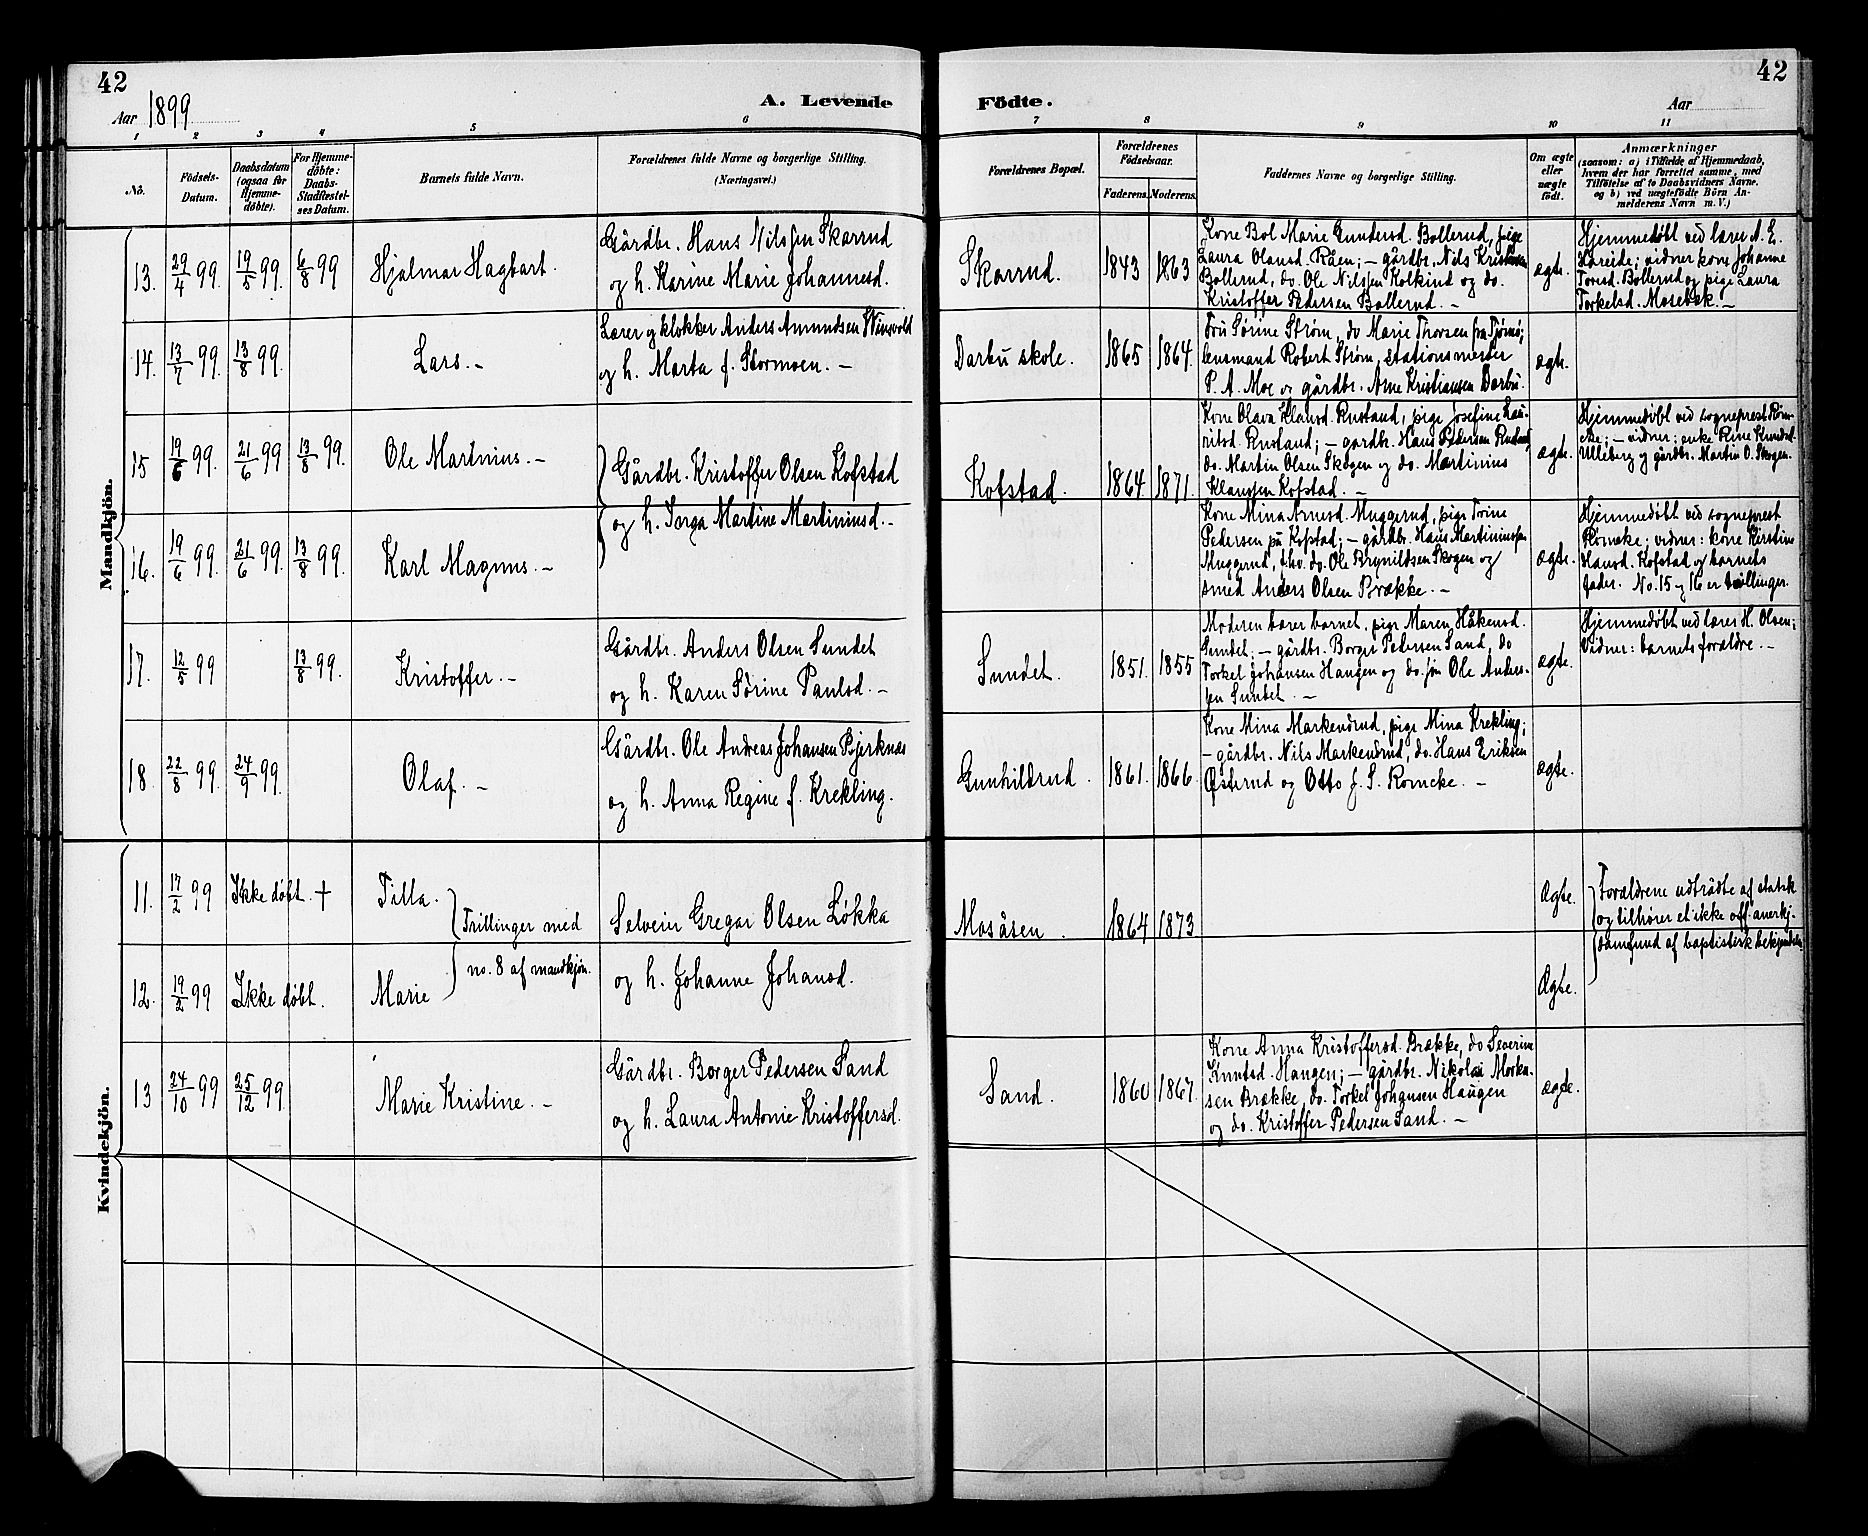 42
Aar 1899
A. Levende
1 2 3 4 5 6
No.
Födsels-Datum.
Daabsdatum (ogsaa for Hjemme-döbte).
For Hjemme-döbte: Daabs-Stadfæstelses Datum.
Barnets fulde Navn.
Forældrenes fulde Navne og borgerlige Stilling.
(Næringsvei.)
Mandkjön.
13. 29/4 99. 19/5 99. 6/8 99 Hjalmar Hagbart.
Gårdbr. Hans Nilssen Skarrud
og h. Karine Marie Johannesd.
14. 13/7 99. 13/8 99. Lars. –
Lærer og klokker Anders Amundsen
og h. Marta f. Stormoen. –
15 19/6 99. 21/6 99 13/8 99. Ole Martinius. –
Gårdbr. Kristoffer Olsen Kofstad
og h. Inga Martine Martiniusd. –
16. 19/6 99. 21/6 99. 13/8 99. Karl Magnus. –
17. 12/5 99 13/8 99. Kristoffer. –
Gårdbr. Anders Olsen Sundet
og h. Karen Sørine Paulsd. –
18. 22/8 99. 24/9 99. Olaf. –
Gårdbr. Ole Andreas Johansen Bjerknæs
og h. Anna Regine f. Krekling.
Kvindekjön.
11. 17/2 99 Ikke døbt. † Tilla.
Trillinger med
no. 8 af mandkjøn.
Selveier Gregar Olsen Løkka
og h. Johanne Johansd.
12. 19/2 99 Ikke døbt. Marie
13 24/10 99 25/12 99. Marie Kristine. –
Gårdbr. Borger Pedersen Sand
og h. Laura Antonie Kristoffersd.
42
Födte.
Aar
7 8 9 10 11
Forældrenes Bopæl.
Forældrenes Födselsaar.
Faderens. Moderens.
Faddernes Navne og borgerlige Stilling.
Om ægte eller uægte födt.
Anmærkninger
(saasom: a) i Tilfælde af Hjemmedaab,
hvem der har forrettet samme, med
Tilföielse af to Daabsvidners Navne,
og b) ved uægtefödte Börn An-
melderens Navn m. V.)
Skarrud. 1843 1863
Kone Bol Marie Gundersd. Bollerud, pige
Laura Olausd. Råen; – gårdbr. Nils Kristensen
Bollerud, do. Ole Nilssen Kolkind og do.
Kristoffer Pedersen Bollerud. –
ægte.
Hjemmedøbt ved lærer A. E.
Hareide; vidner kone Johanne
Torsd. Bollerud og pige Laura
Torkelsd. Mosebæk. –
Darbu skole. 1865 1864.
Fru Sørine Strøm, do Marie Thorsen fra Tjømø;
lensmand Robert Strøm, stationsmester
P. A. Moe og gårdbr. Arne Kristiansen Darbu.
ægte.
Kofstad. 1864 1871.
Kone Olava Klausd. Rustand, pige Josefine Lau-
ritsd. Rustand; – gårdbr. Hans Pedersen Rustand,
do. Martin Olsen Skogen og do. Martinius
Klaussen Kofstad. –
ægte.
Hjemmedøbt ved sogneprest Røm-
cke; – vidner: enke Rine Knudsd.
Ulleberg og gårdbr. Martin O. Skogen.
Kone Mina Arnesd. Muggerud, pige Trine
Pedersen på Kofstad; – gårdbr. Hans Martiniussen
Muggerud, do. Ole Brynildsen Skogen og
smed Anders Olsen Brække. –
ægte.
Hjemmedøbt ved sogneprest
Rømcke; vidner: kone Kirstine
Hansd. Kofstad og barnets
fader. No. 15 og 16 er tvillinger.
Sundet. 1851. 1855
Moderen bærer barnet, pige Maren Håkensd.
Sundet; – gårdbr. Borger Pedersen Sand, do
Torkel Johansen Haugen og do. søn Ole Anders-
sen Sundet. –
ægte.
Hjemmedøbt ved lærer H. Olsen;
Vidner: barnets forældre. –
Gunhildrud. 1861. 1866.
Kone Mina Markendrud, pige Mina Krekling;
– gårdbr. Nils Markendrud, do. Hans Eriksen
Østerud og Otto J. S. Romcke. –
ægte.
Mosåsen. 1864 1873
Ægte.
Forældrene udtrådte af statsk
og tilhører et ikke off. anerkj.
samfund af baptistisk bekjendelse
Ægte.
Sand. 1860 1867.
Kone Anna Kristoffersd. Brække, do Severine
Knutsd. Haugen; – gårdbr. Nikolai Morka-
sen Brække, do. Torkel Johansen Haugen
og do. Kristoffer Pedersen Sand. –
ægte.